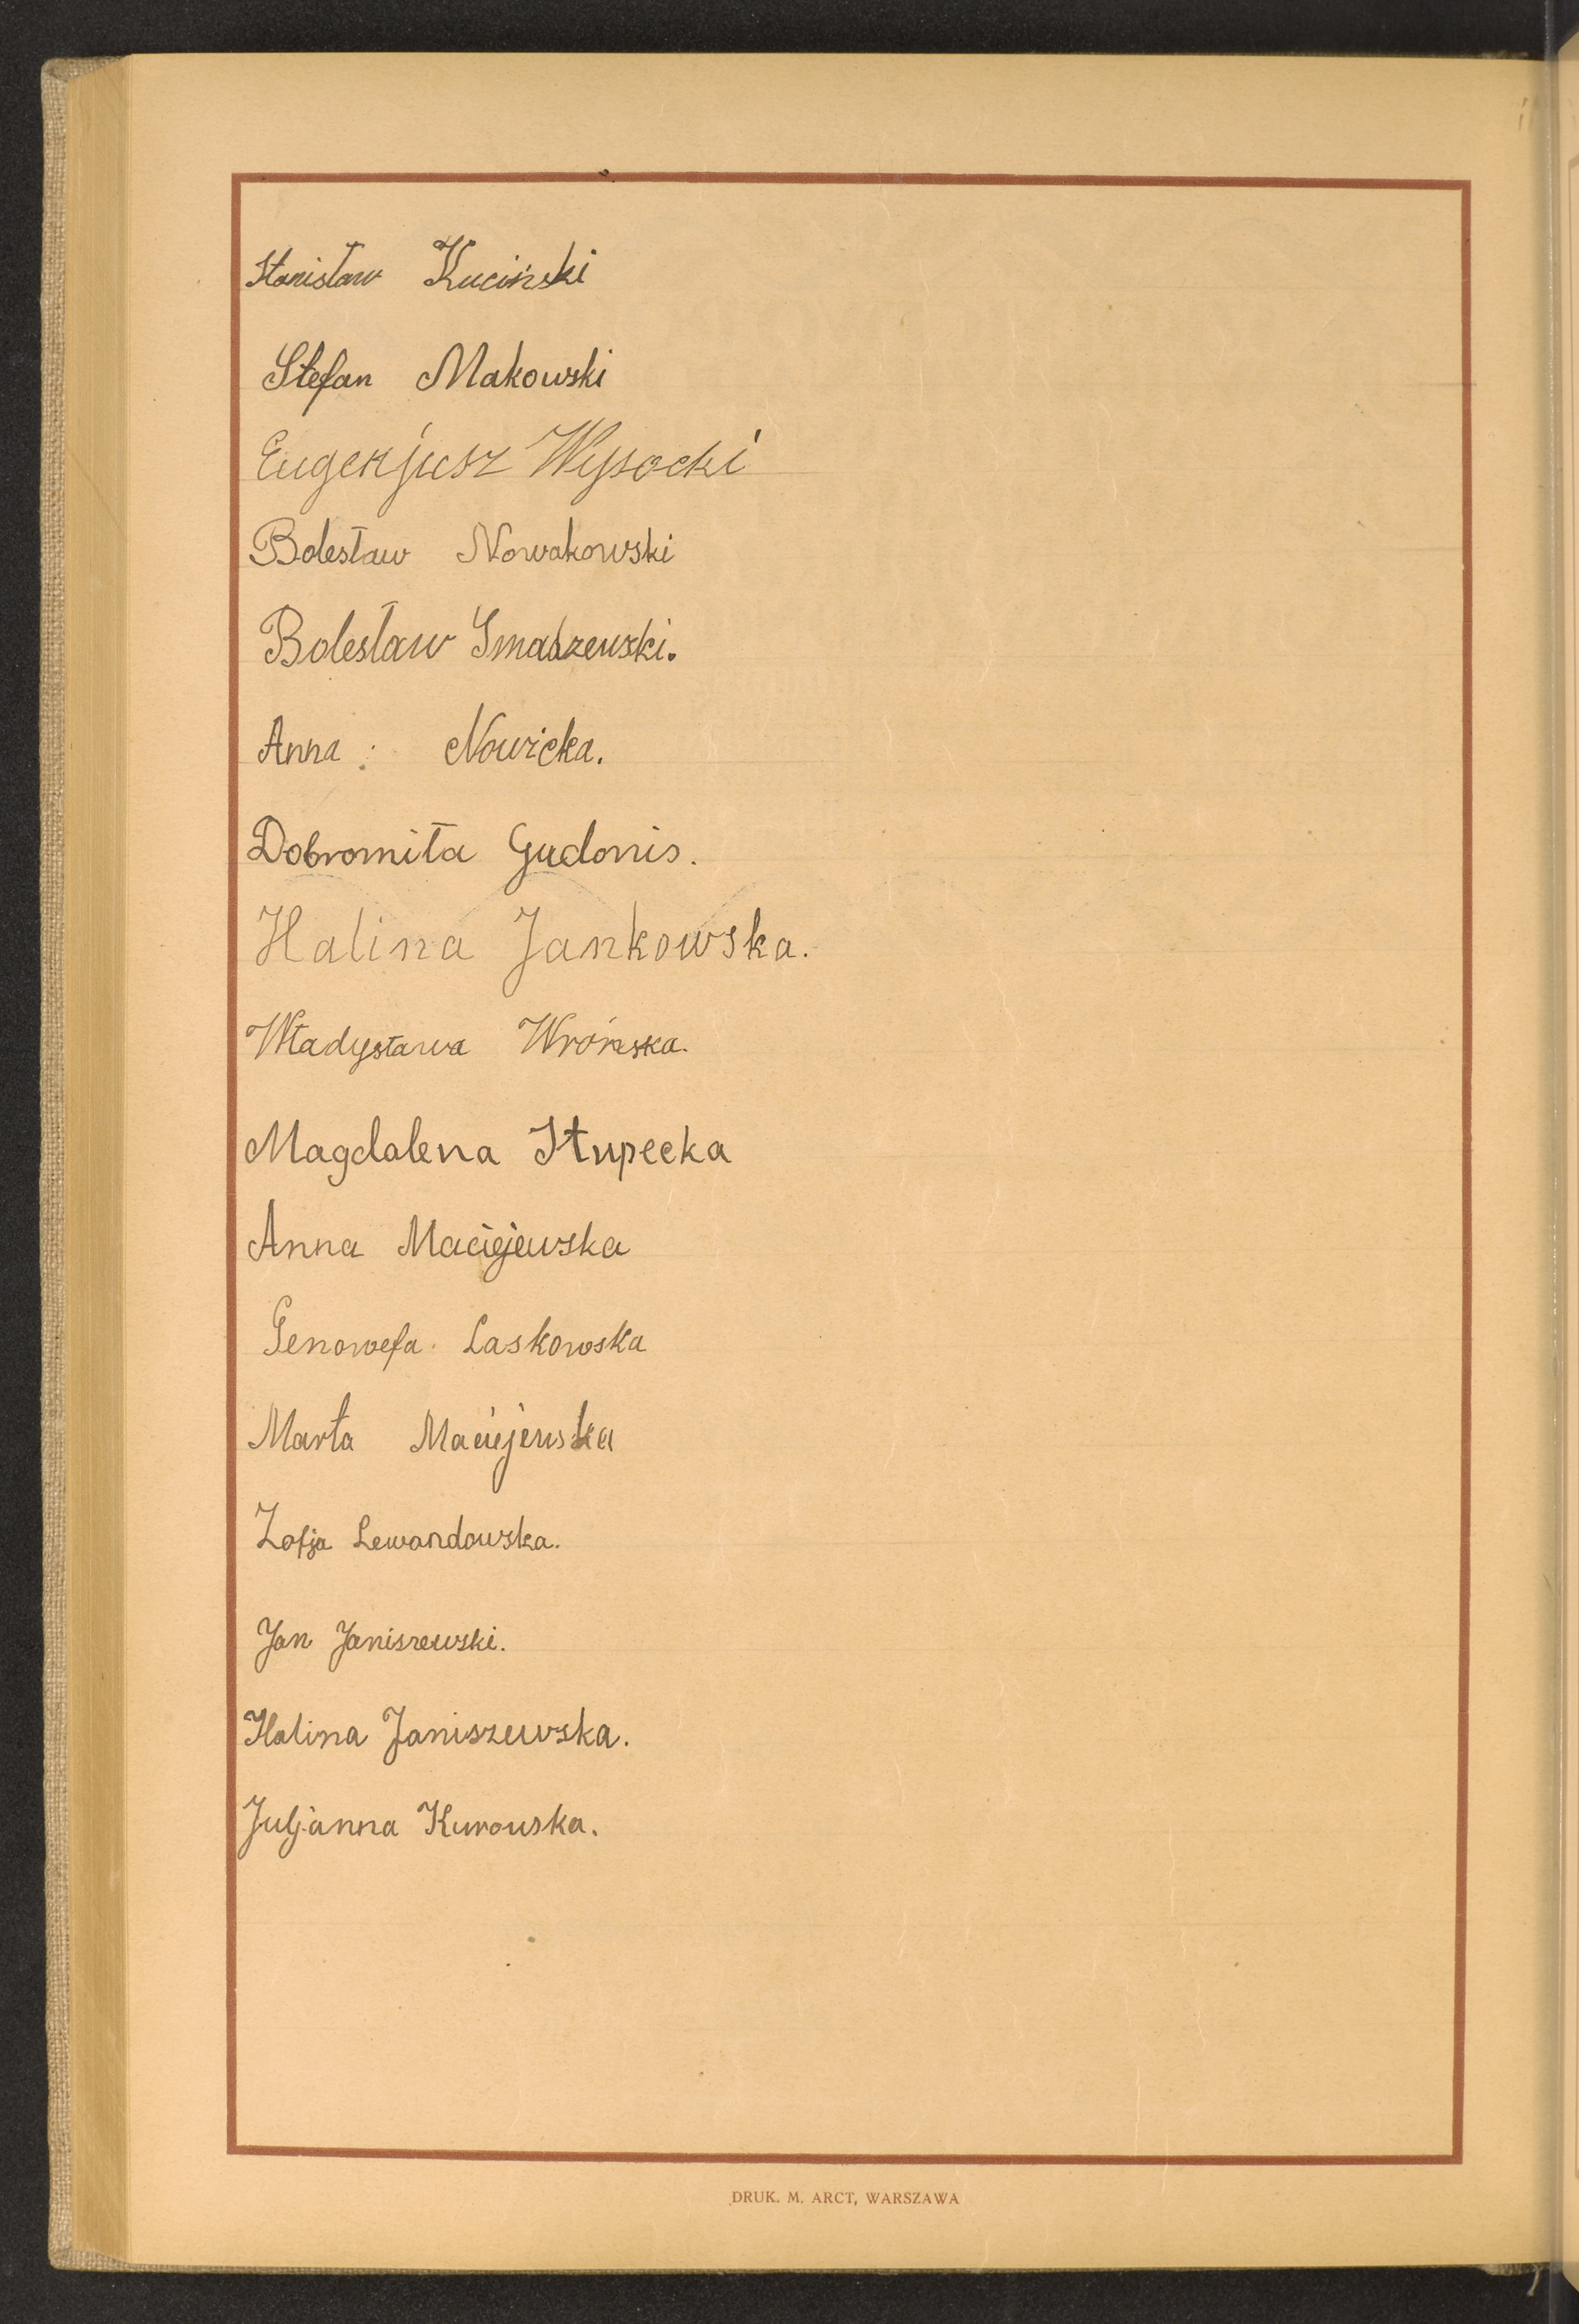 Stanisław Kuciński
Stefan Makowski
Eugenjusz Wysocki
Bolesław Nowakowski
Bolesław Smadzewski.
Anna : Nowicka.
Dobromiła Gudonis.
Halina Jankowska.
Władysława Wrońska.
Magdalena Słupecka
Anna Maciejewska
Genowefa Laskowska
Marta Maciejewska
Zofja Lewandowska.
Jan Janiszewski.
Halina Janiszewska.
Juljanna Kurowska.
DRUK. M. ARCT, WARSZAWA